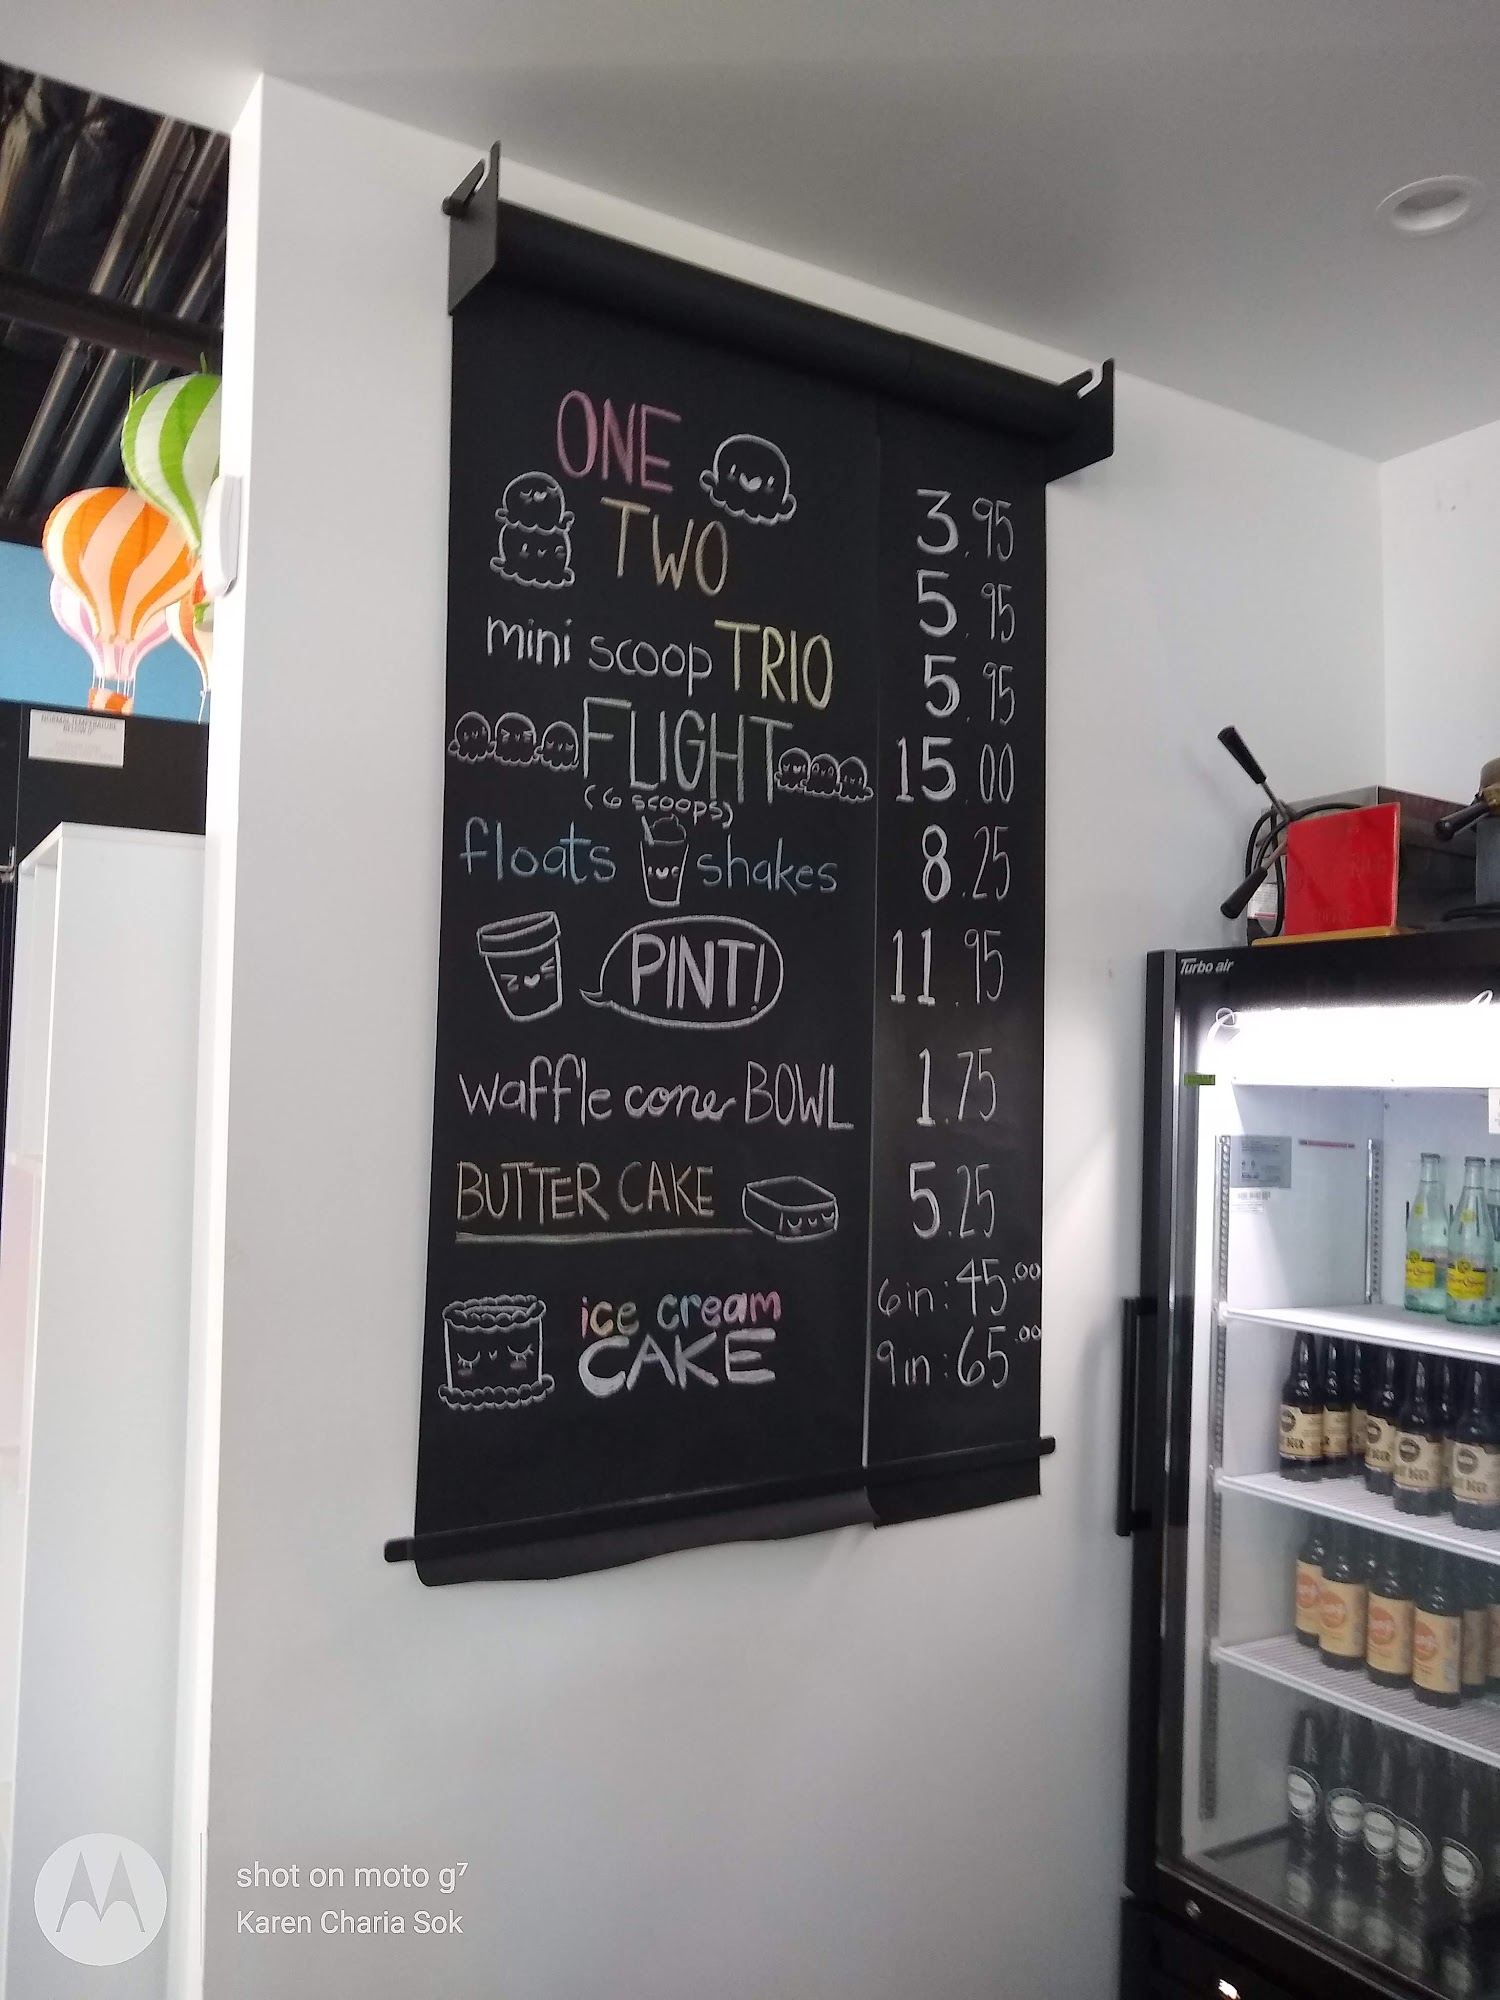 ONE 3.95
TWO 5.95
mini scoop TRIO 5.95
FLIGHT 15.00
(6 scoops)
floats shakes 8.25
PINT! 11.95
waffle cone BOWL 1.75
BUTTER CAKE 5.25
ice cream
CAKE
6in: 45.00
9in: 65.00
Turbo air
NORMAL TEMPERATURE
BELOW 0°
BEER
BEER
BEER
shot on moto g⁷
Karen Charia Sok